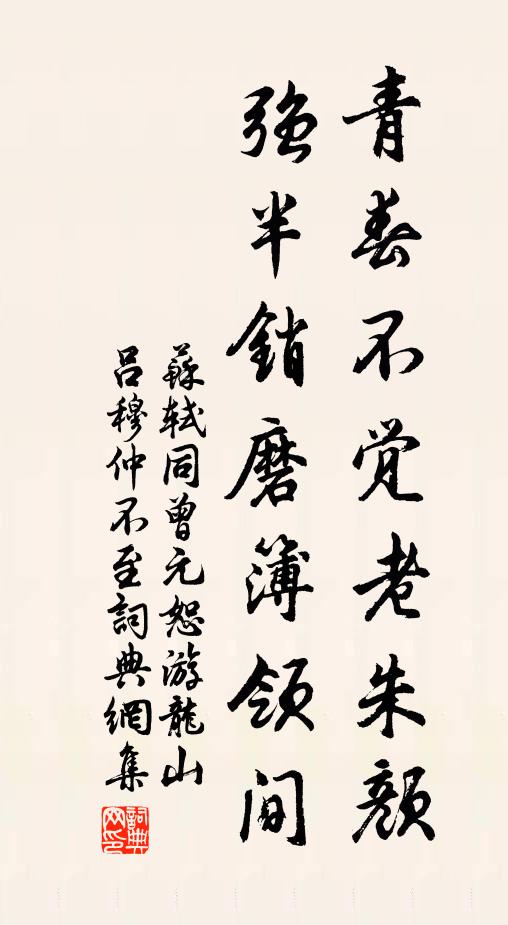 青春不觉老朱颜
强半销磨簿领间
蘇軾同曾元恕游龍山
吕穆仲不至詞典網集
詞典網印